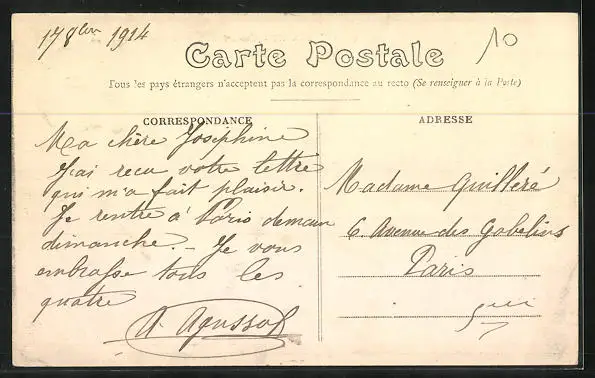 17 8bre 1914
10
Carte Postale
Tous les pays étrangers n'acceptent pas la correspondance au recto (Se renseigner à la Poste)
CORRESPONDANCE
Ma chère Joséphine
J'ai reçu votre lettre
qui m'a fait plaisir.
Je rentre à Paris demain
dimanche. - Je vous
embrasse tous les
quatre
ADRESSE
Madame Guilleré
6. Avenue des Gobelins
Paris